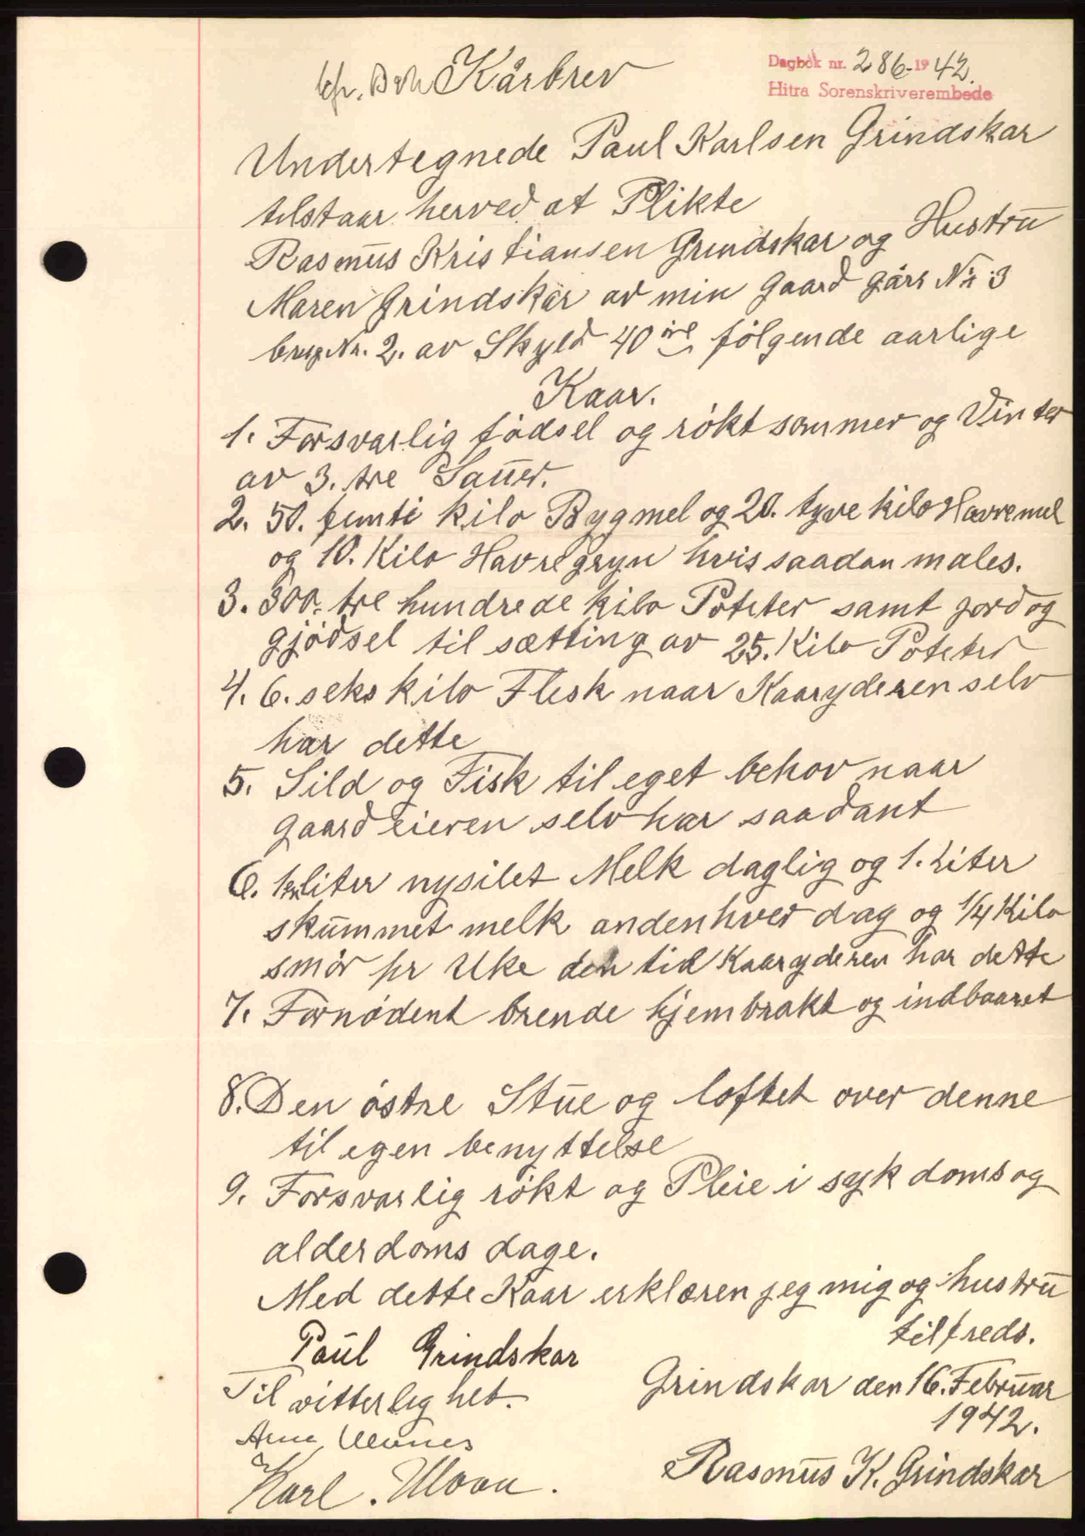 Kårbrev
Dagbok nr. 286-1942.
Hitra Sorenskriverembede
Undertegnede Paul Karlsen Grindskar
tilstaar herved at Plikte
Rasmus Kristiansen Grindskar og Hustru
Maren Grindskar av min gaard gårs Nr. 3
brug Nr. 2. av Skyld 40 øre følgende aarlige
Kaar.
1. Forsvarlig fødsel og røkt sommer og Vinter
av 3. tre Sauer.
2. 50. femti kilo Bygmel og 20. tyve kilo Havremel
og 10. Kilo Havregryn hvis saadan males.
3. 300. tre hundrede kilo Poteter samt jord og
gjødsel til sætting av 25. Kilo Poteter
4. 6. seks kilo Flesk naar Kaaryderen selv
har dette
5. Sild og Fisk til eget behov naar
gaardeieren selv har saadant
6. 1 liter nysilet Melk daglig og 1. Liter
skummet melk andenhver dag og 1/4 Kilo
smør pr Uke den tid Kaaryderen har dette
7. Fornødent brende hjembrakt og indbaaret
8. Den østre Stue og loftet over denne
til egen benyttelse
9. Forsvarlig røkt og Pleie i sykdoms og
alderdoms dage.
Med dette Kaar erklæren jeg mig og hustru
tilfreds.
Paul Grindskar
Grindskar den 16. Februar
1942.
Til vitterlighet.
Arne
Rasmus K. Grindskar
Karl. Moan.